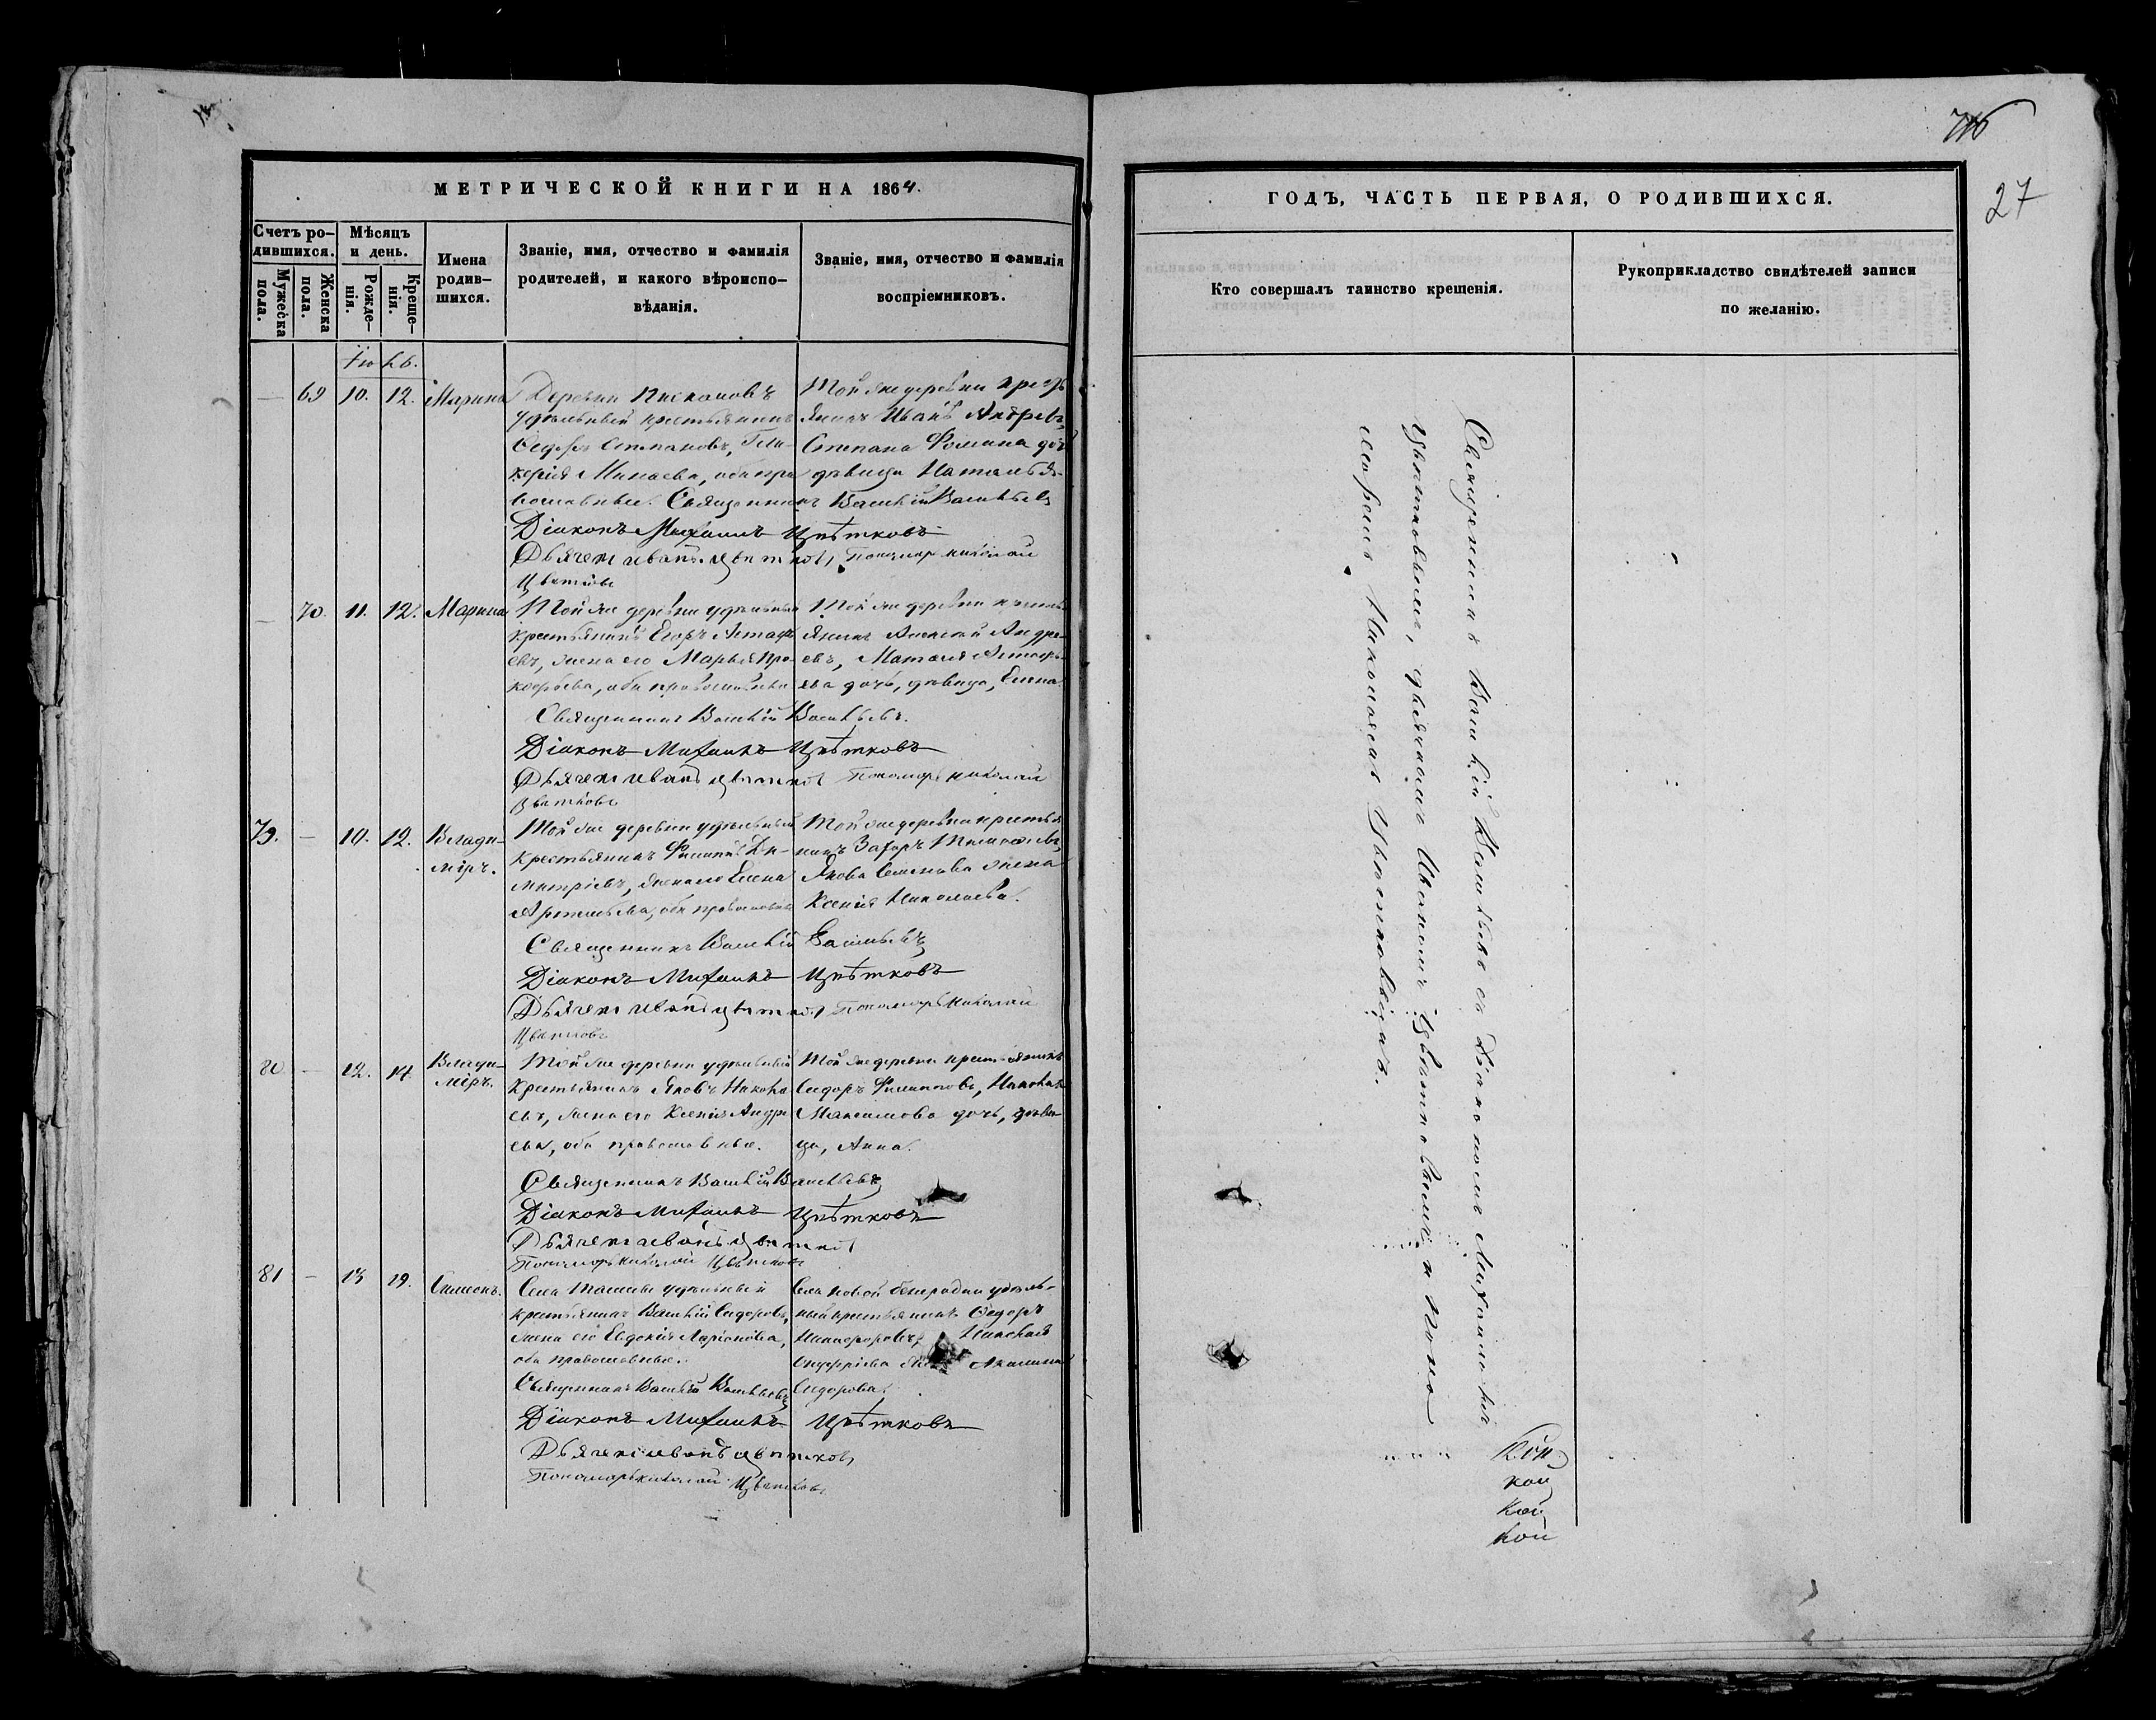 МЕТРИЧЕСКОЙ КНИГИ НА 1864.
Счетъ ро-
дившихся.
Мужеска
пола.
Женска
пола.
Мѣсяцъ
и день.
Рожде-
нія.
Креще-
нія.
Имена
родив-
шихся.
Званіе, имя, отчество и фамилія
родителей, и какого вѣроиспо-
вѣданія.
Званіе, имя, отчество и фамилія
воспріемниковъ.
69 10. 12. Марина
Деревни
удѣльный крестьянинъ
Степановъ, Гли-
керія Минаева, оба пра
вославные. Священникъ Василій Васильевъ
Той же деревни кресть
янинъ Иванъ Андреевъ,
Степана Фомина дочь
дѣвица Наталья.
Діаконъ Михаилъ Цвѣтковъ
Дьячекъ Иванъ Цвѣтковъ Пономарь Николай
Цвѣтковъ
70. 11. 12. Марина
Той же деревни удѣльный
крестьянинъ Егоръ Астафь
евъ, жена его Марья Про-
кофьева, оба православные
Той же деревни кресть
янинъ Алексѣй Андре-
евъ,
ева дочь, дѣвица, Елена.
Священникъ Василій Васильевъ.
Діаконъ Михаилъ Цвѣтковъ
Дьячекъ Иванъ Цвѣтковъ Пономарь Николай
Цвѣтковъ
79. — 10. 12. Влади-
міръ.
Той же деревни удѣльный
крестьянинъ Филипъ Ди-
митріевъ, жена его Елена
Артемьева, оба православные
Той же деревни крестья
нинъ Захаръ
Якова Семенова жена
Ксенія Николаева.
Священникъ Василій Васильевъ
Діаконъ Михаилъ Цвѣтковъ
Дьячекъ Иванъ Цвѣтковъ Пономарь Николай
Цвѣтковъ
80. — 12. 14. Влади-
міръ.
Той же деревни удѣльный
крестьянинъ Яковъ
евъ, жена его Ксенія Андре
ева, оба православные.
Той же деревни крестьянинъ
Сидоръ Филипповъ,
Максимова дочь, дѣви-
ца, Анна.
Священникъ Василій Васильевъ
Діаконъ Михаилъ Цвѣтковъ
Дьячекъ Иванъ Цвѣтковъ
Пономарь Николай Цвѣтковъ
81 — 13 19. Симеонъ.
Села Ташлы удѣльный
крестьянинъ Василій Сидоровъ,
жена его Евдокія Ларіонова,
оба православные.
Села Новой Бинарадки удѣль-
ный крестьянинъ Ѳедоръ
Никифоровъ,
Акилина
Сидорова.
Священникъ Василій Васильевъ
Діаконъ Михаилъ Цвѣтковъ
Дьячекъ Иванъ Цвѣтковъ
Пономарь Николай Цвѣтковъ
27
ГОДЪ, ЧАСТЬ ПЕРВАЯ, О РОДИВШИХСЯ.
Кто совершалъ таинство крещенія.
Рукоприкладство свидѣтелей записи
по желанію.
Священникъ Василій Васильевъ съ Діакономъ Михаиломъ
Цвѣтковымъ, дьячкомъ Иваномъ Цвѣтковымъ и поно
маремъ Николаемъ Цвѣтковымъ.